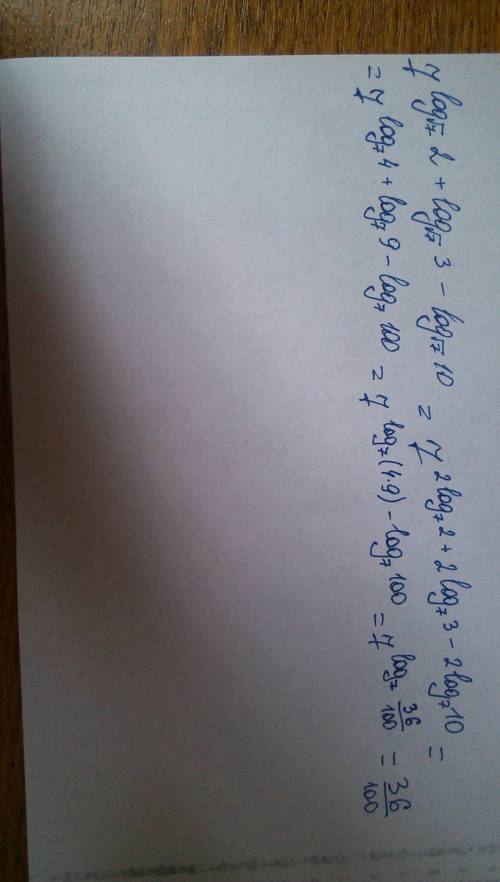 7^{log_{√7} 2 + log_{√7} 3 - log_{√7} 10} = 7^{2 log_7 2 + 2 log_7 3 - 2 log_7 10} =
= 7^{log_7 4 + log_7 9 - log_7 100} = 7^{log_7 (4·9) - log_7 100} = 7^{log_7 \frac{36}{100}} = \frac{36}{100}